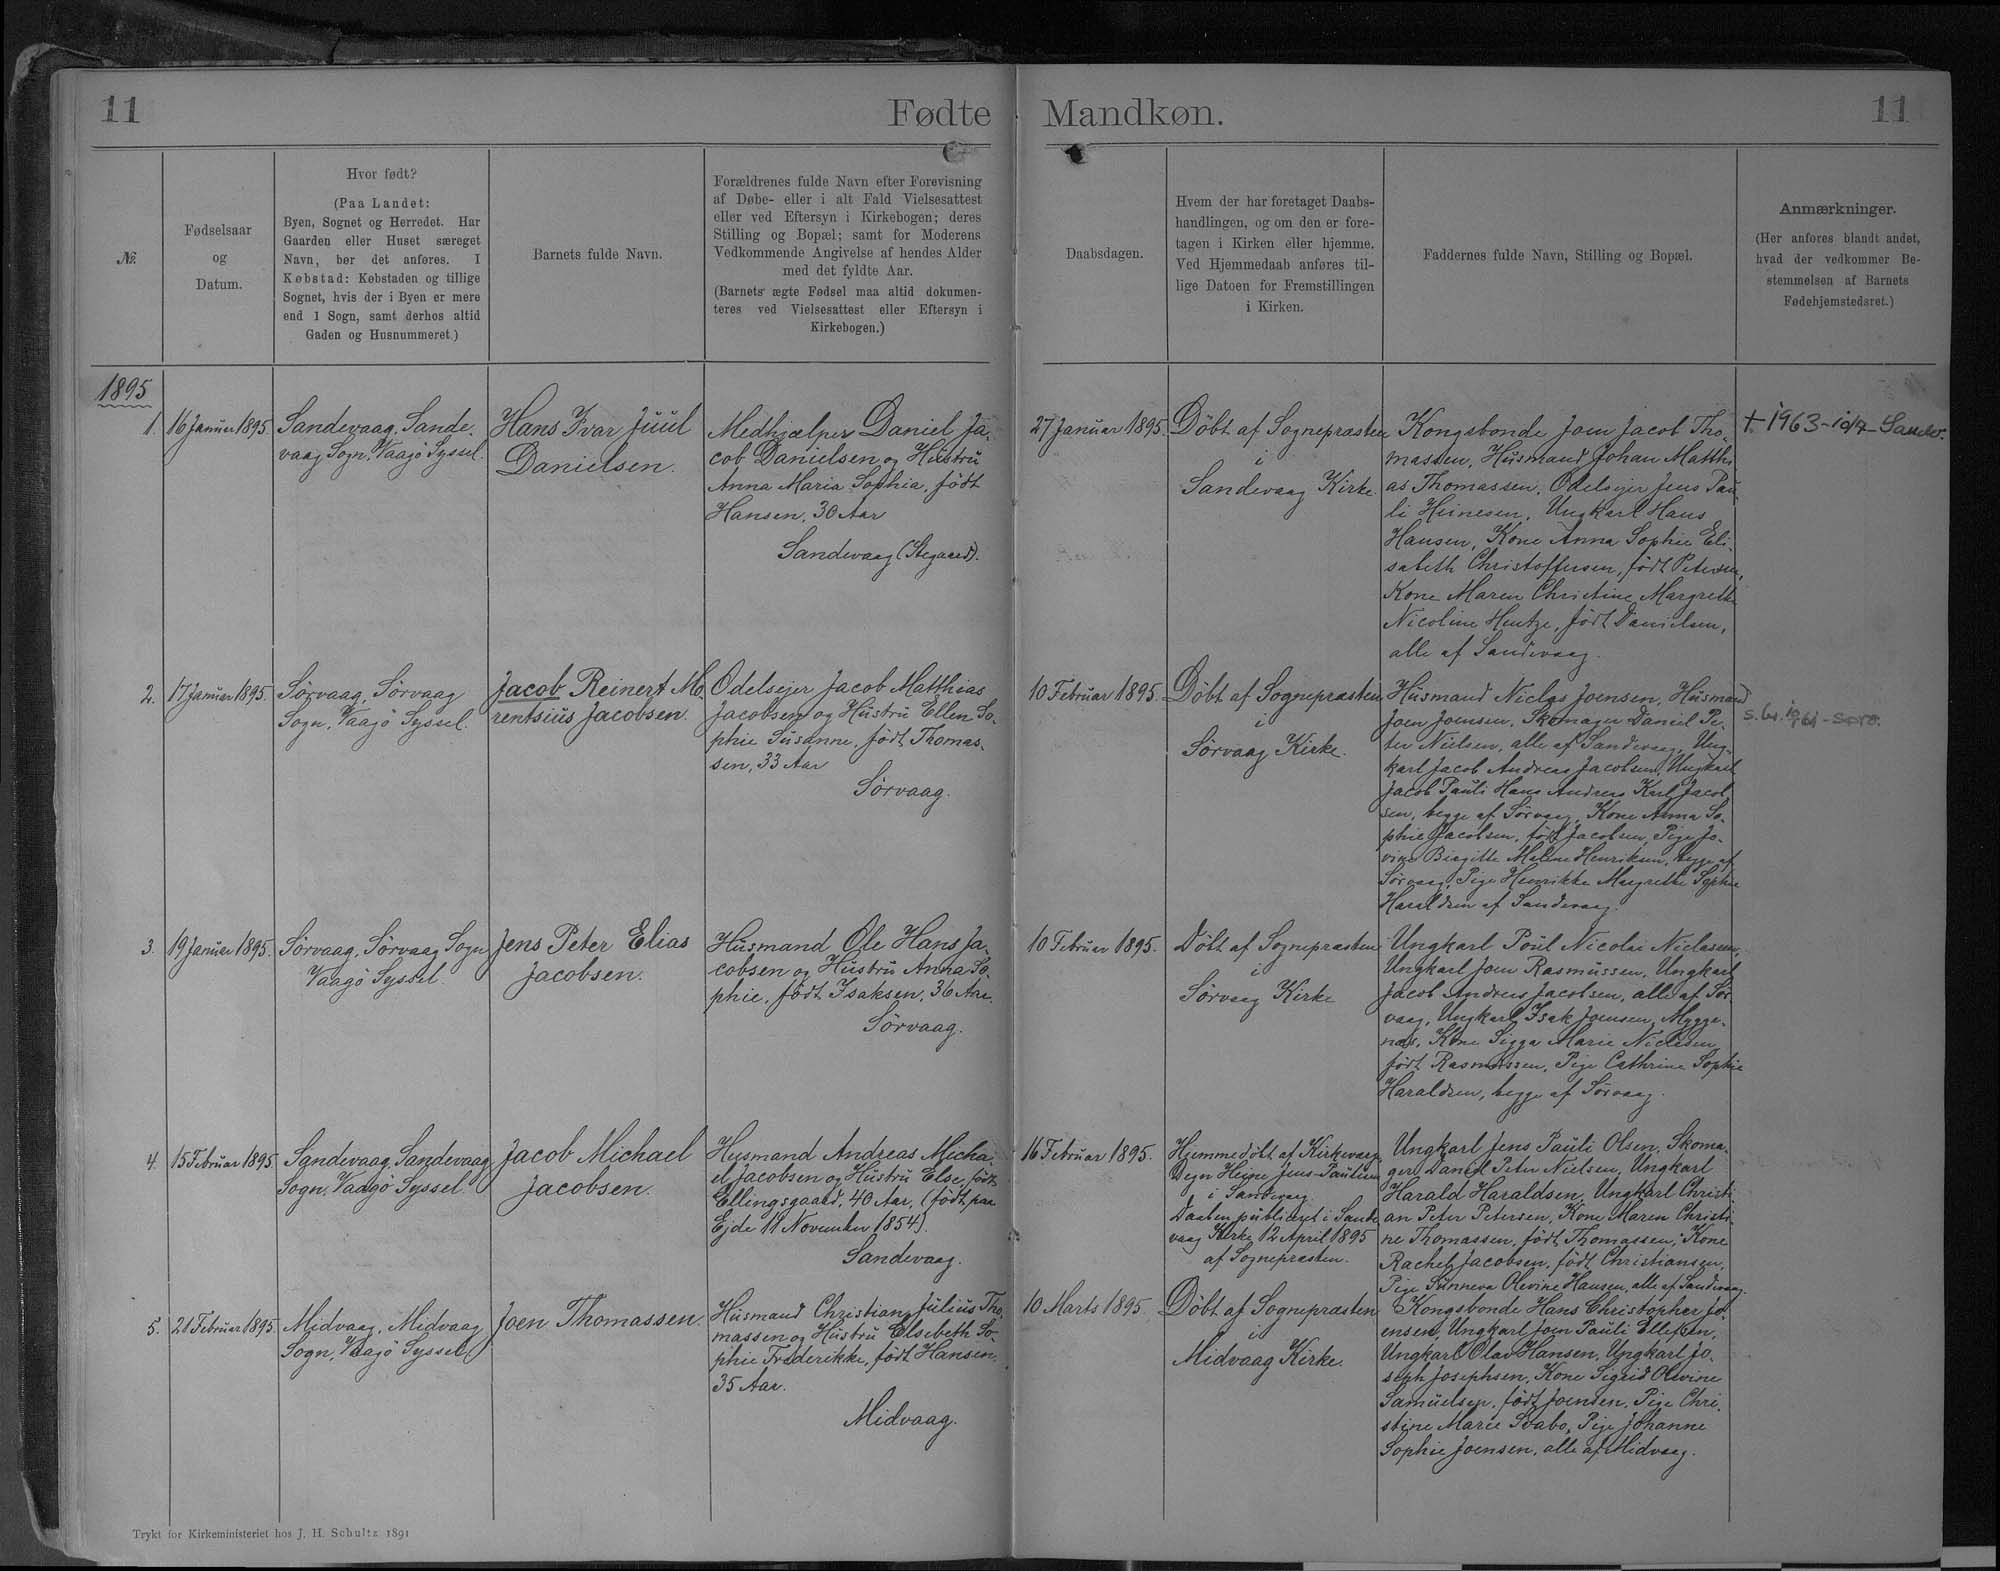 11
Fødte
Mandkøn.
11
№.
Fødselsaar
og
Datum.
Hvor født?
(Paa Landet:
Byen, Sognet og Herredet. Har
Gaarden eller Huset særeget
Navn, bør det anføres. I
Købstad: Købstaden og tillige
Sognet, hvis der i Byen er mere
end 1 Sogn, samt derhos altid
Gaden og Husnummeret.)
Barnets fulde Navn.
Forældrenes fulde Navn efter Forevisning
af Døbe- eller i alt Fald Vielsesattest
eller ved Eftersyn i Kirkebogen; deres
Stilling og Bopæl; samt for Moderens
Vedkommende Angivelse af hendes Alder
med det fyldte Aar.
(Barnets ægte Fødsel maa altid dokumen-
teres ved Vielsesattest eller Eftersyn i
Kirkebogen.)
Daabsdagen.
Hvem der har foretaget Daabs-
handlingen, og om den er fore-
tagen i Kirken eller hjemme.
Ved Hjemmedaab anføres til-
lige Datoen for Fremstillingen
i Kirken.
Faddernes fulde Navn, Stilling og Bopæl.
Anmærkninger.
(Her anføres blandt andet,
hvad der vedkommer Be-
stemmelsen af Barnets
Fødehjemstedsret.)
1895
1.
16 Januar 1895.
Sandevaag, Sande-
vaag Sogn, Vaagö Syssel.
Hans Ivar Juul
Danielsen.
Medhjælper Daniel Ja-
cob Danielsen og Hustru
Anna Maria Sophia, født
Hansen, 30 Aar
Sandevaag (Stegaard).
27 Januar 1895.
Döbt af Sognepræsten
i
Sandevaag Kirke.
Kongsbonde Joen Jacob Tho-
massen, Husmand Johan Matthi
as Thomassen, Odelsejer Jens Pau-
li Heinesen, Ungkarl Hans
Hansen, Kone Anna Sophie Eli-
sabeth Christoffersen, født Petersen,
Kone Maren Christine Margrethe
Nicoline Hentze, født Danielsen,
alle af Sandevaag.
† 1963-
2.
17 Januar 1895.
Sörvaag, Sörvaag
Sogn, Vaagö Syssel.
Jacob Reinert Mo
rentsius Jacobsen.
Odelsejer Jacob Matthias
Jacobsen og Hustru Ellen So-
phie Susanne, født Thomas-
sen, 33 Aar
Sörvaag.
10 Februar 1895.
Döbt af Sognepræsten
i
Sörvaag Kirke.
Husmand Niclas Joensen, Husmand
Joen Joensen, Skomager Daniel Pe-
ter Nielsen, alle af Sandevaag, Ung-
karl Jacob Andreas Jacobsen, Ungkarl
Jacob Pauli Hans Andreas Karl Jacob
sen, begge af Sörvaag, Kone Anna So-
phie Jacobsen, født Jacobsen, Pige Jo-
vine Birgitte Malene Henriksen, begge af
Sörvaag, Pige Henrikke Margrethe Sophie
Haraldsen af Sandevaag.
3.
19 Januar 1895.
Sörvaag, Sörvaag Sogn
Vaagö Syssel.
Jens Peter Elias
Jacobsen.
Husmand Ole Hans Ja-
cobsen og Hustru Anna So-
phie, født Isaksen, 36 Aar.
Sörvaag.
10 Februar 1895.
Döbt af Sognepræsten
i
Sörvaag Kirke
Ungkarl Poul Nicolai Niclasen,
Ungkarl Joen Rasmussen, Ungkarl
Jacob Andreas Jacobsen, alle af Sör-
vaag, Ungkarl Isak Joensen, Mygge-
næs, Kone Sigga Marie Niclasen
født Rasmussen, Pige Cathrine Sophie
Haraldsen, begge af Sörvaag.
4.
15 Februar 1895
Sandevaag, Sandevaag
Sogn, Vaagö Syssel.
Jacob Michael
Jacobsen.
Husmand Andreas Micha-
el Jacobsen og Hustru Else, født
Ellingsgaard, 40 Aar, (født paa
Ejde 11 November 1854).
Sandevaag.
16 Februar 1895.
Hjemmedöbt af
Degn Heine Jens Paulisen
i Sandevaag.
Daaben publiceret i Sande
vaag Kirke 12 April 1895
af Sognepræsten.
Ungkarl Jens Pauli Olsen, Skoma-
ger Daniel Peter Nielsen, Ungkarl
Harald Haraldsen, Ungkarl Christi
an Peter Petersen, Kone Maren Christi-
ne Thomassen, født Thomassen, Kone
Rachel Jacobsen, født Christiansen,
Pige Sunneva Olevine Hansen, alle af Sandevaag.
5.
21 Februar 1895
Midvaag, Midvaag
Sogn, Vaagö Syssel
Joen Thomassen.
Husmand Christian Julius Tho-
massen og Hustru Elsebeth So-
phie Frederikke, født Hansen,
35 Aar.
Midvaag.
10 Marts 1895.
Döbt af Sognepræsten
i
Midvaag Kirke.
Kongsbonde Hans Christopher Jo-
ensen, Ungkarl Joen Pauli Ellefsen,
Ungkarl Olav Hansen, Ungkarl Jo-
seph Josephsen, Kone Sigrid Olevine
Samuelsen, født Joensen, Pige Chri-
stine Marie Svabo, Pige Johanne
Sophie Joensen, alle af Midvaag.
Trykt for Kirkeministeriet hos J. H. Schultz 1891